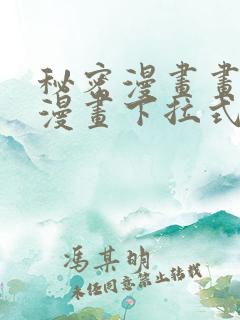 秘密漫畫畫
漫畫下拉式
馮某明
未经同意禁止转载